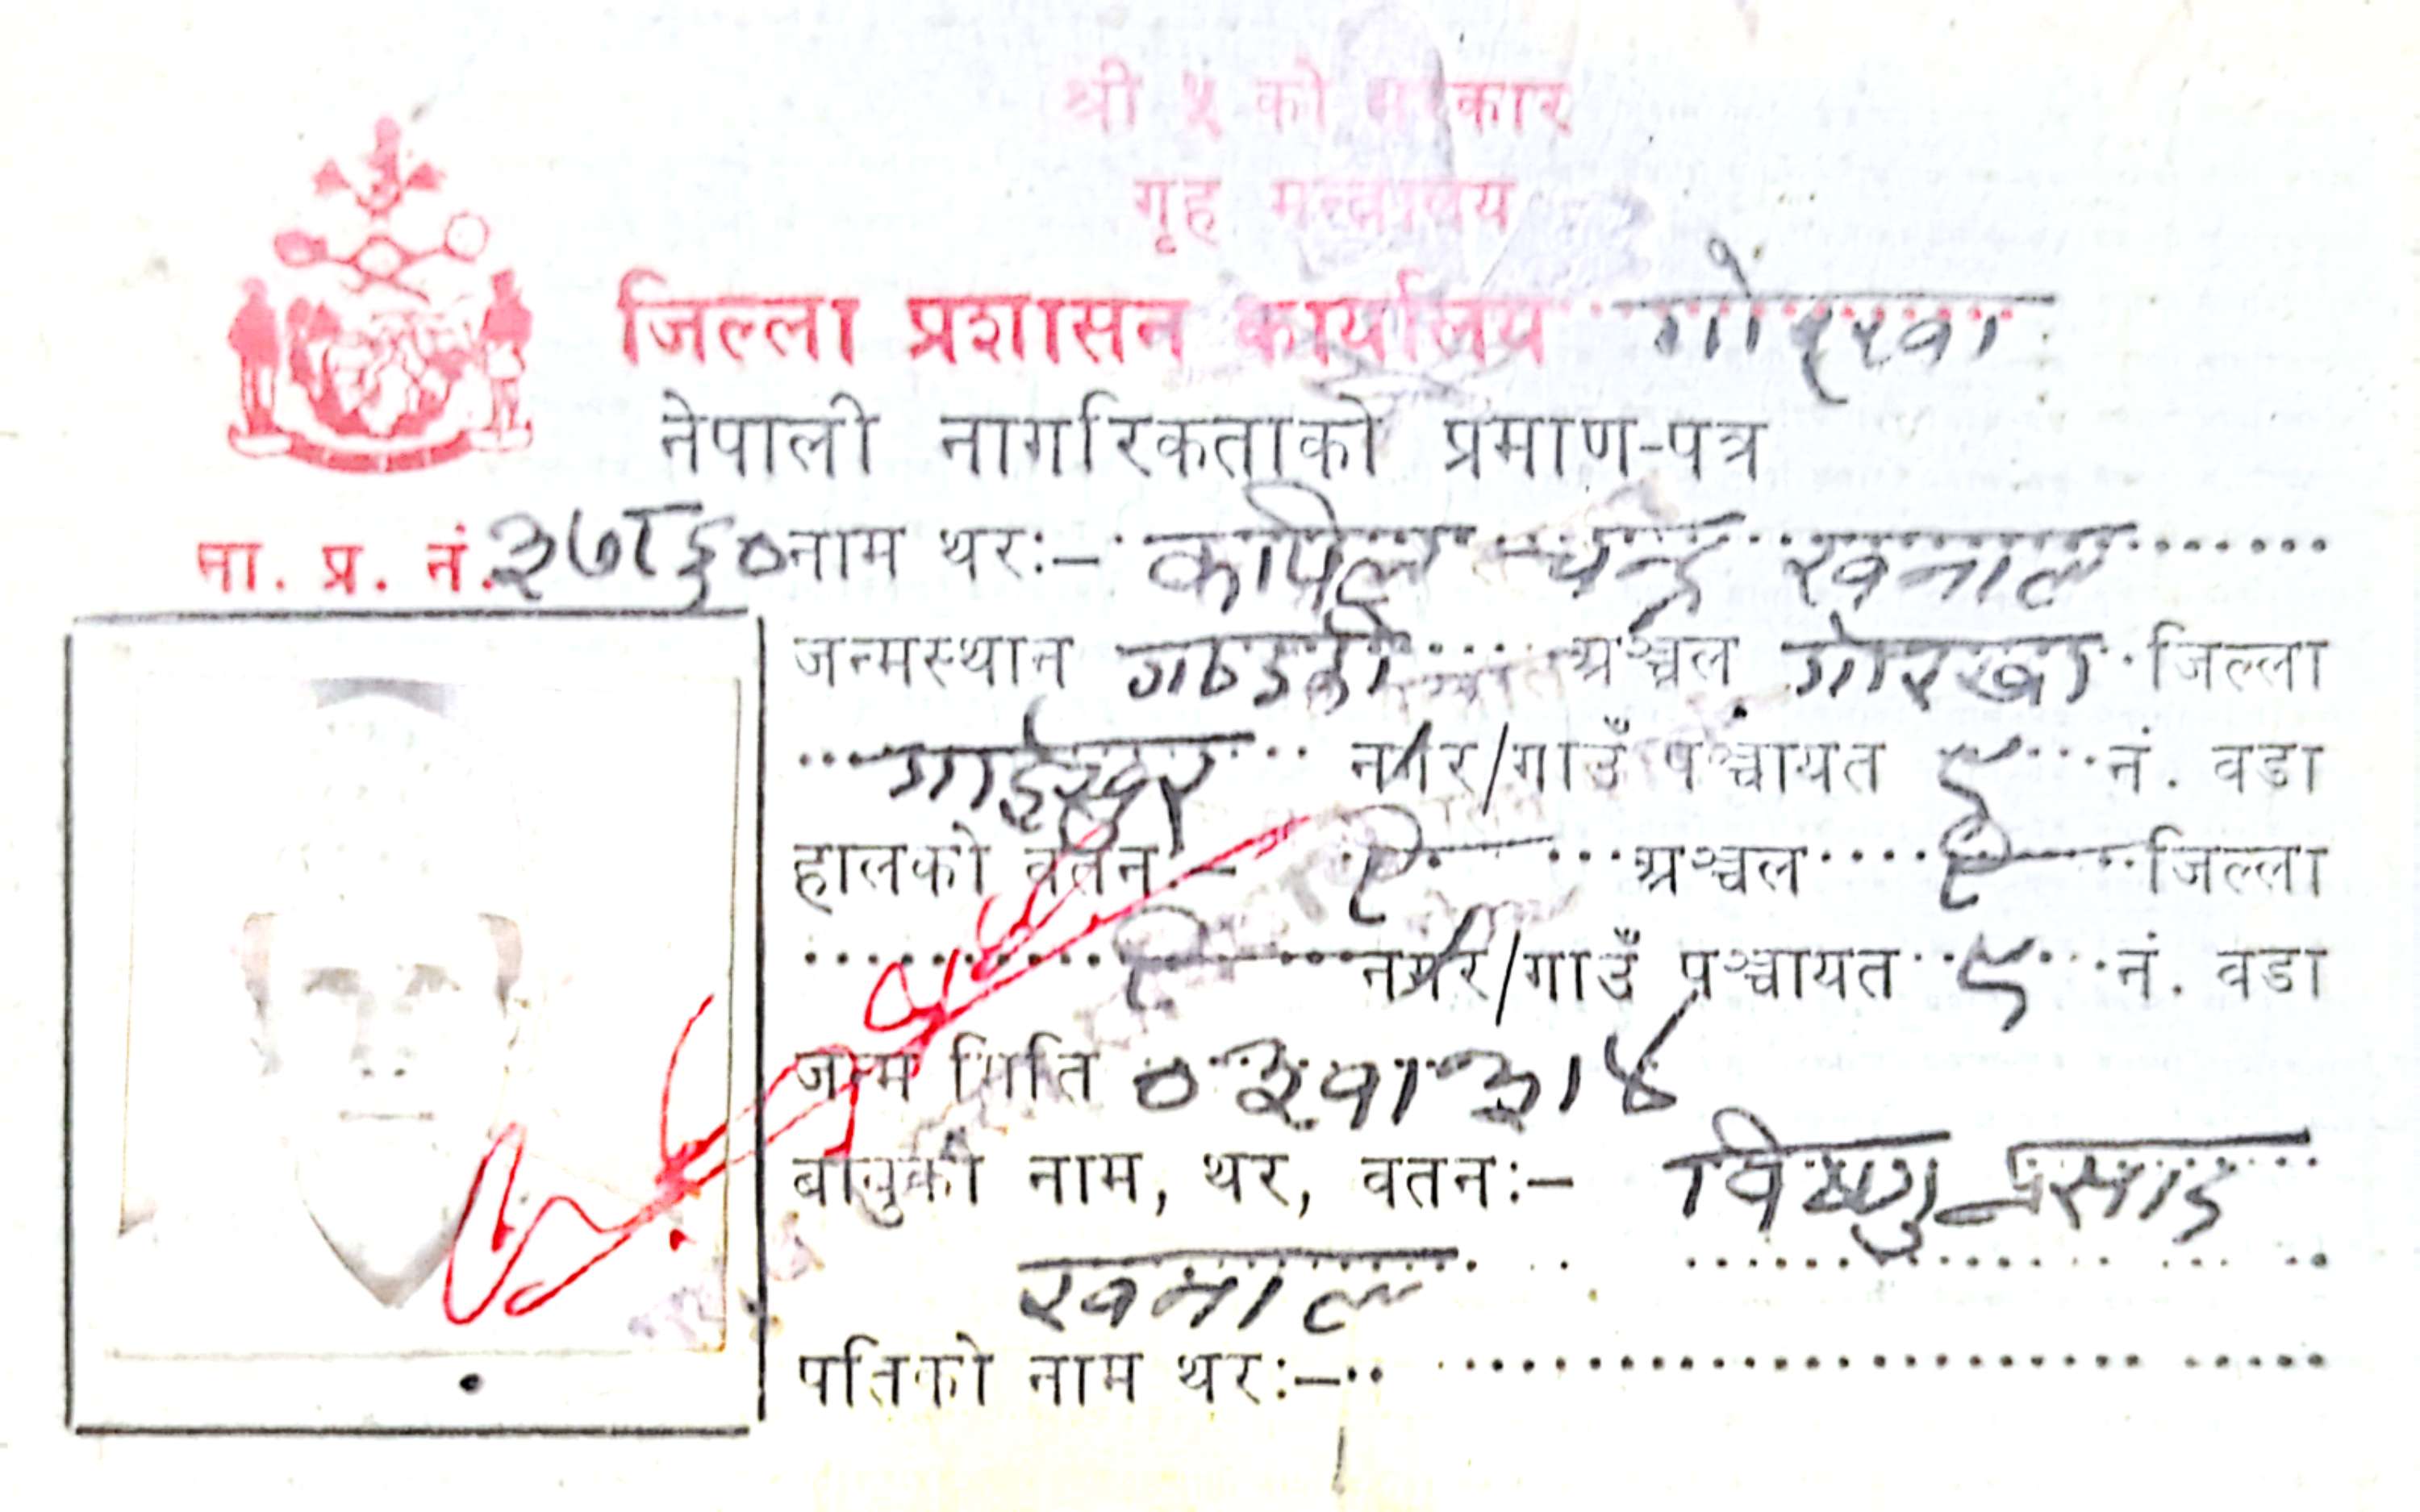 श्री ५ को सरकार
गृह मन्त्रालय
जिल्ला प्रशासन कार्यालय गोरखा
नेपाली नागरिकताको प्रमाण-पत्र
ना. प्र. नं. ३७८६० नाम थरः- कपिल चन्द्र खनाल
जन्मस्थान गण्डकी अञ्चल गोरखा जिल्ला
नगर/गाउँ पञ्चायत ९ नं. वडा
हालको वतनः- ऐ अञ्चल ऐ जिल्ला
ऐ नगर/गाउँ पञ्चायत ९ नं. वडा
जन्म मिति
बाबुको नाम, थर, वतनः- विष्णु प्रसाद
खनाल
पतिको नाम थरः-